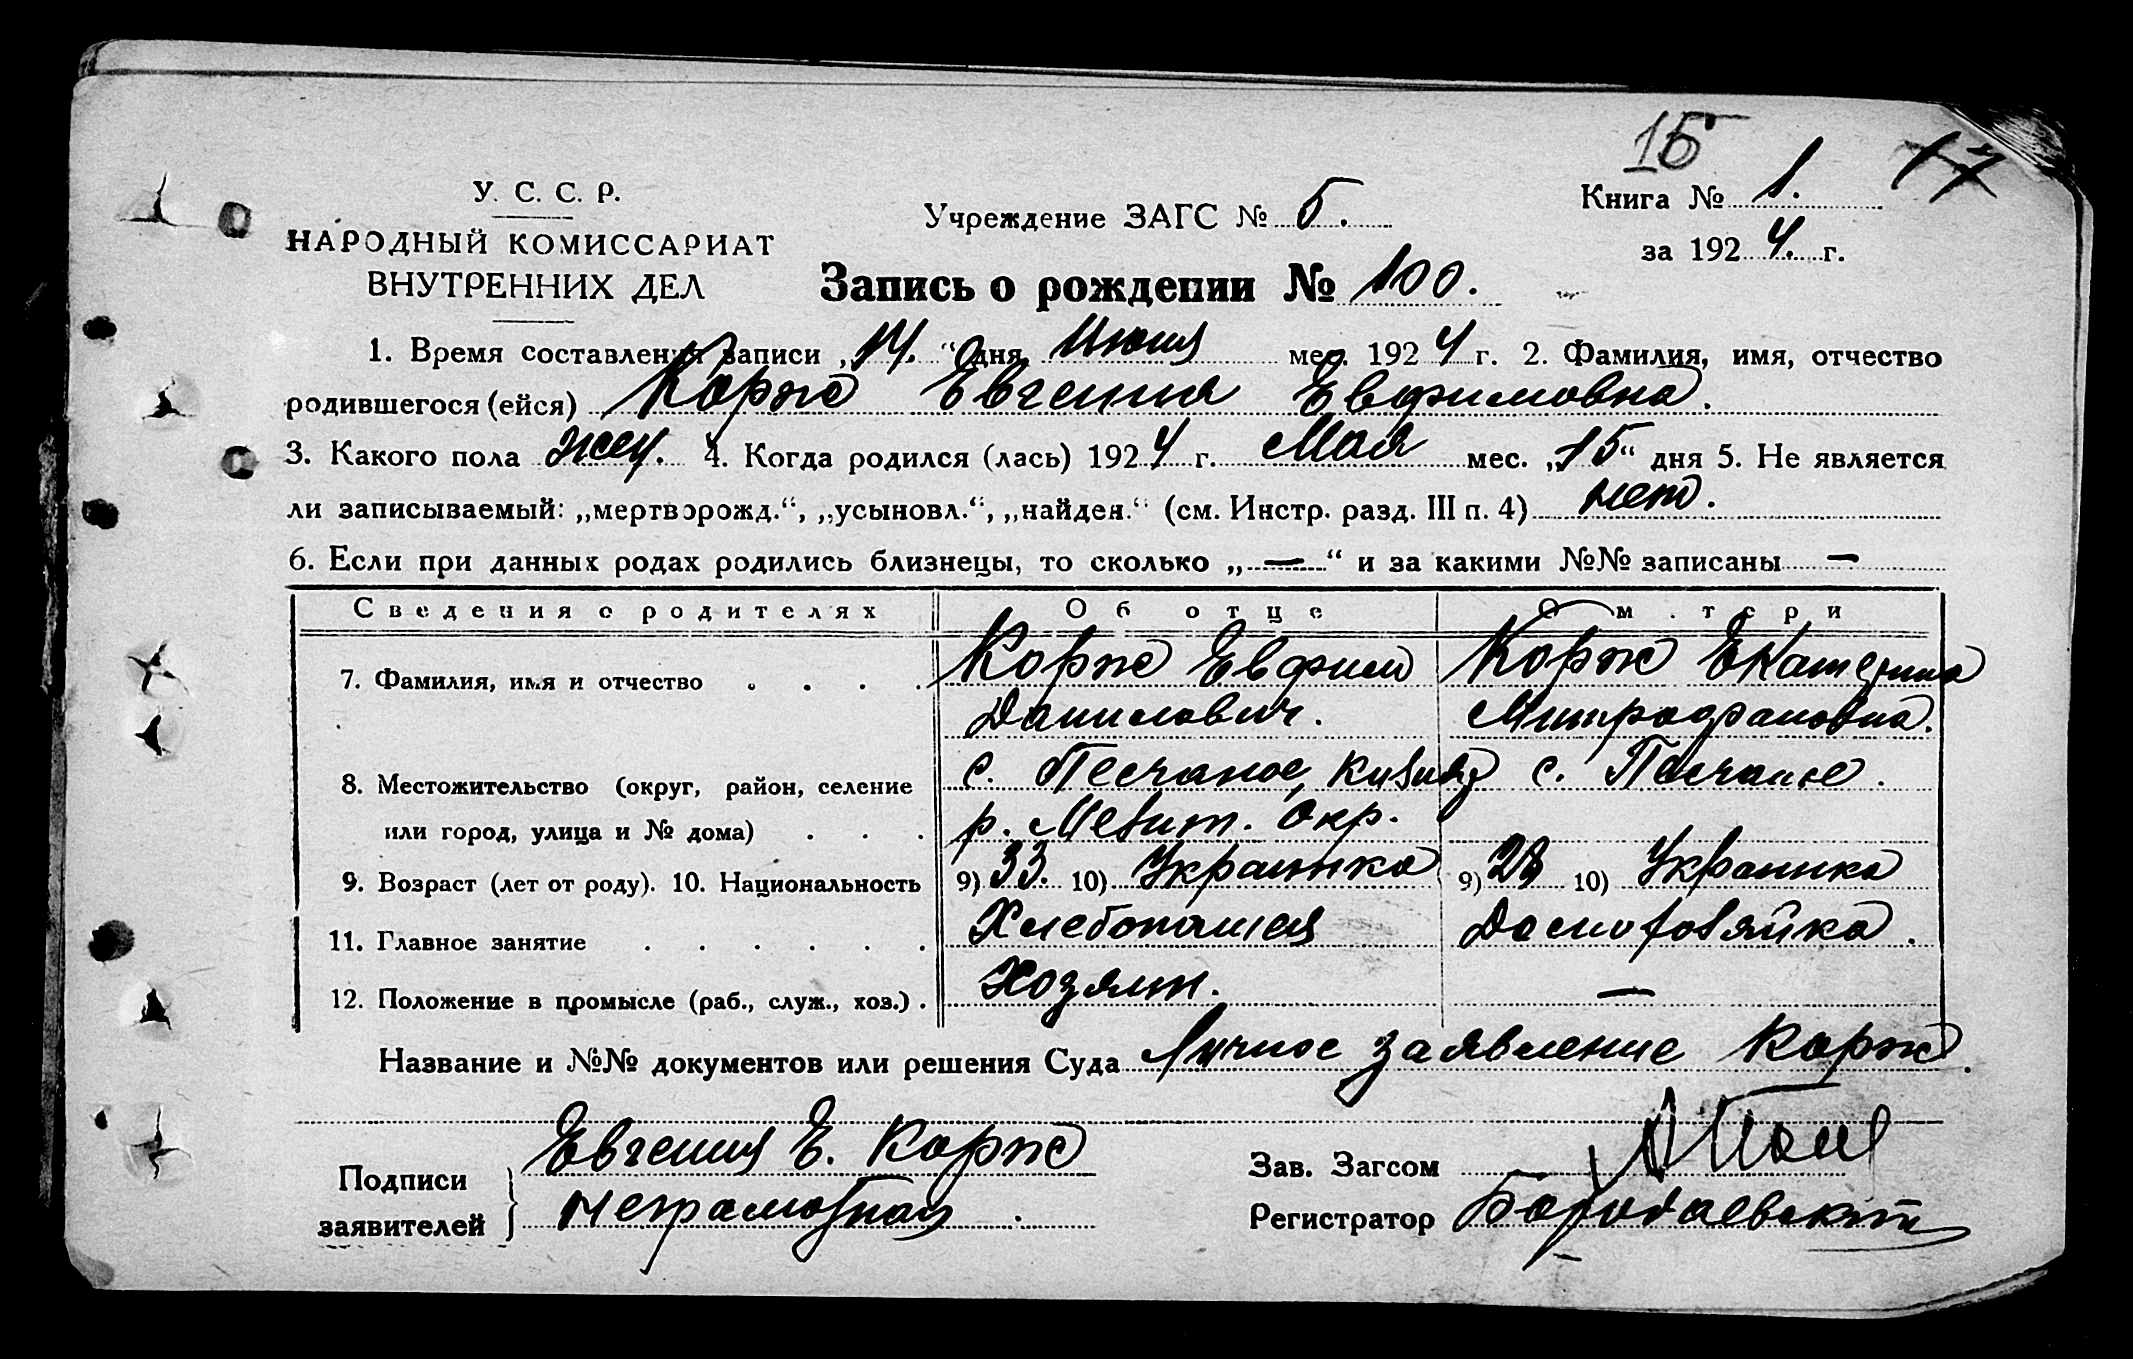 15
17
У. С. С. Р.
НАРОДНЫЙ КОМИССАРИАТ
ВНУТРЕННИХ ДЕЛ
Учреждение ЗАГС № 5.
Книга № 1.
за 1924 г.
Запись о рождении № 100.
1. Время составления записи „14.“ дня Июня мес. 1924 г. 2. Фамилия, имя, отчество
родившегося (ейся) Корж Евгения Евфимовна.
3. Какого пола жен. 4. Когда родился (лась) 1924 г. Мая мес. „15“ дня 5. Не является
ли записываемый: „мертворожд.“, „усыновл.“, „найден.“ (см. Инстр. разд. III п. 4) нет.
6. Если при данных родах родились близнецы, то сколько „—“ и за какими №№ записаны —
Сведения о родителях Об отце О м тери
7. Фамилия, имя и отчество Корж Евфим Корж Екатерина
Данилович. Митрофановна.
8. Местожительство (округ, район, селение с. Песчаное, с. Песчаное.
или город, улица и № дома) р. Мелит. Окр.
9. Возраст (лет от роду). 10. Национальность 9) 33. 10) Украинка 9) 28 10) Украинка
11. Главное занятие Хлебопашец Домохозяйка.
12. Положение в промысле (раб., служ., хоз.) Хозяин. —
Название и №№ документов или решения Суда Личное заявление Корж.
Подписи
заявителей
Евгения Е. Корж
неграмотная.
Зав. Загсом
Регистратор